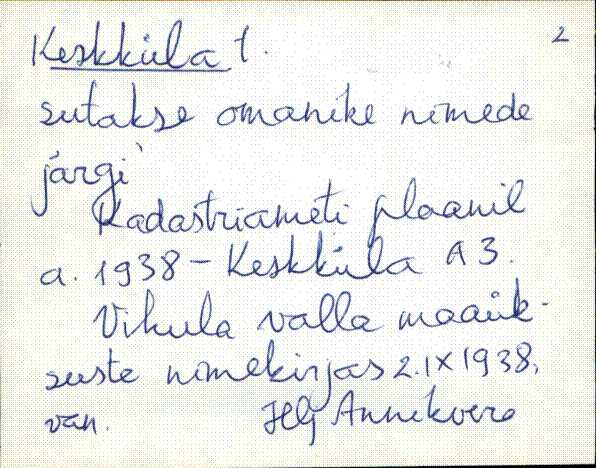 Keskküla t. 2
sutakse omanike nimede
järgi
Kadastriameti plaanil
a. 1938 – Keskküla A 3.
Vihula valla maaük-
suste nimekirjas 2.IX 1938,
van. Annikvere